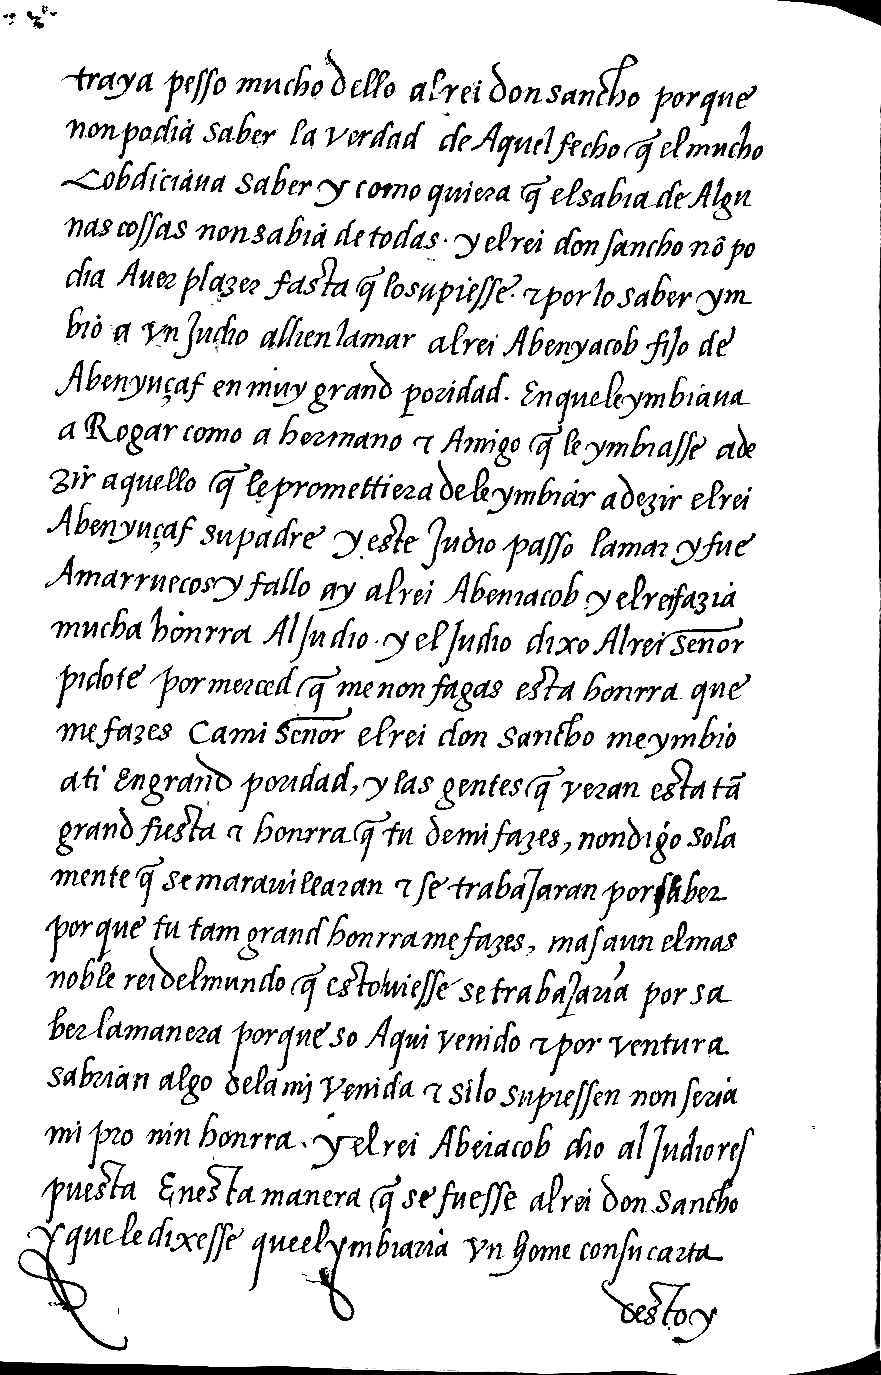 traya pesso mucho dello al rei don sancho por que
non podia saber la verdad de Aquel fecho q̃ el mucho
Cobdiciaua saber y como quiera q̃ el sabia de Algu
nas cossas non sabia de todas. y el rei don sancho nõ po
dia Auer plazer fasta q̃ lo supiesse. et por lo saber ym
bio a vn Judio allien la mar al rei Abenyacob fijo de
Abenyuçaf en muy grand poridad. En que le ymbiaua
a Rogar como a hermano et Amigo q̃ le ymbiasse a de
zir aquello q̃ le promettiera de le ymbiar a dezir el rei
Abenyuçaf su padre y este Judio passo la mar y fue
A marruecos y fallo ay al rei Abeniacob y el rei fazia
mucha honrra Al Judio. y el Judio dixo Al rei señor
pidote por merced q̃ me non fagas esta honrra que
me fazes Ca mi señor el rei don sancho me ymbio
a ti En grand poridad, y las gentes q̃ veran esta tã
grand fiesta et honrra q̃ tu de mi fazes, non digo sola
mente q̃ se marauillaran et se trabajaran por saber
por que tu tam grand honrra me fazes, mas aun el mas
noble rei del mundo q̃ esto uiesse se trabajaria por sa
ber la manera por que so Aqui venido et por ventura
sabrian algo de la mj venida et si lo supiessen non seria
mi pro nin honrra. y el rei Abeiacob dio al Judio res
puesta En esta manera q̃ se fuesse al rei don sancho
y que le dixesse que el ymbiaria vn home con su carta
desto y